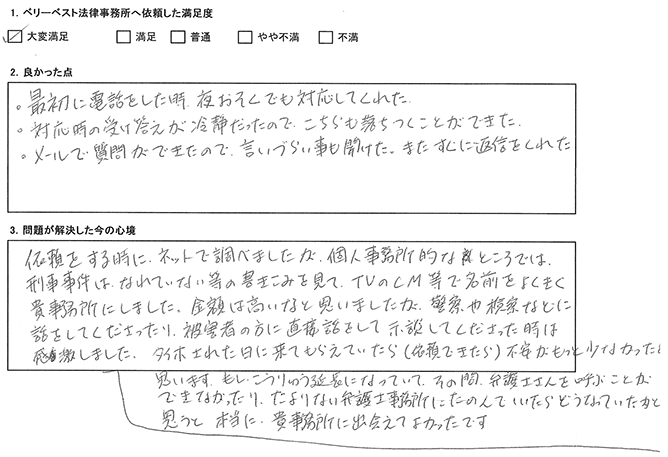 1. ベリーベスト法律事務所へ依頼した満足度
大変満足 満足 普通 やや不満 不満
2. 良かった点
。最初に電話をした時、夜おそくでも対応してくれた。
。対応時の受け答えが冷静だったので、こちらも落ちつくことができた。
。メールで質問ができたので、言いづらい事も聞けた。またすぐに返信をくれた
3. 問題が解決した今の心境
依頼をする時に、ネットで調べましたが、個人事務所的なところでは、
刑事事件は、なれていない等の書きこみを見て、TVのCM等で名前をよくきく
貴事務所にしました。金額は高いなと思いましたが、警察や検察などに
話をしてくださったり、被害者の方に直接話をして示談してくださった時は
感激しました。タイホされた日に来てもらえていたら(依頼できたら)不安がもっと少なかったと
思います。もし、こうりゅう延長になっていて、その間、弁護士さんを呼ぶことが
できなかったり、たよりない弁護士事務所にたのんでいたらどうなっていたかと
思うと 本当に、貴事務所に出会えてよかったです